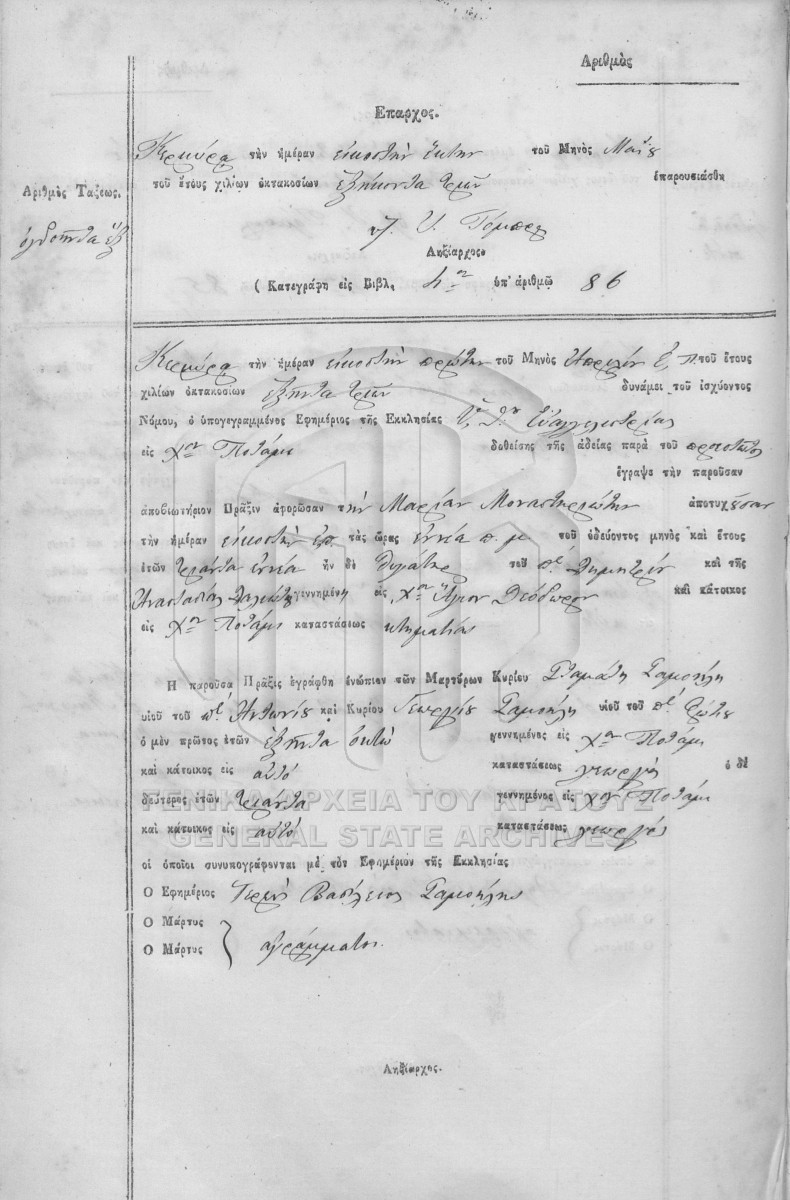 Αριθμὸς
Επαρχος.
Κερκύρα τὴν ἡμέραν εἰκοστὴν ἕκτην τοῦ Μηνὸς Μαΐου
τοῦ ἔτους χιλίων ὀκτακοσίων ἑξήκοντα τριῶν ἐπαρουσιάσθη
Αριθμὸς Ταξεως.
ὀγδοῆντα ἕξ
Ληξίαρχος
( Κατεγράφη εἰς Βιβλ. 4ον ὑπ' ἀριθμῶ 86
Κερκύρα τὴν ἡμέραν εἰκοστὴν πρώτην τοῦ Μηνὸς Ἀπριλίου Ε. Π. τοῦ ἔτους
χιλίων ὀκτακοσίων ἑξῆντα τριῶν δυνάμει τοῦ ἰσχύοντος
Νόμου, ὁ ὑπογεγραμμένος Εφημέριος τῆς Εκκλησίας Εὐαγγελιστρίας
εἰς Χον Ποταμοῦ δοθείσης τῆς ἀδείας παρὰ τοῦ
ἔγραψε τὴν παροῦσαν
ἀποβιωτήριον Πρᾶξιν ἀφορῶσαν τὴν Μαρίαν Μοναστηριώτην ἀποτυχοῦσαν
τὴν ἡμέραν εἰκοστὴν ἐπ. τὰς ὥρας ἐννέα π. μ. τοῦ ὁδεύοντος μηνὸς καὶ ἔτους
ἐτῶν τριάντα ἐννέα ἦν δὲ θυγάτηρ τοῦ πε Δημητρίου καὶ τῆς
Ἀναστασίας γεννημένη εἰς Χον Ἅγιον Θεόδωρον καὶ κάτοικος
εἰς Χον Ποταμοῦ καταστάσεως κτηματίας
Η παροῦσα Πρᾶξις ἐγράφθη ἐνώπιον τῶν Μαρτύρων Κυρίου Σταμάτη Σαμοήλη
υἱοῦ τοῦ πε Ἀντωνίου καὶ Κυρίου Γεωργίου Σαμοήλη υἱοῦ τοῦ πε
ὁ μὲν πρῶτος ἐτῶν ἑξῆντα ὀκτὼ γεννημένος εἰς Χον Ποταμοῦ
καὶ κάτοικος εἰς αὐτό καταστάσεως γεωργός ὁ δὲ
δεύτερος ἐτῶν τριάντα γεννημένος εἰς χον Ποταμοῦ
καὶ κάτοικος εἰς αὐτό καταστάσεως γεωργός
οἱ ὁποῖοι συνυπογράφονται μὲ τὸν Εφημέριον τῆς Εκκλησίας
Ο Εφημέριος Ἱερεὺς Βασίλειος Σαμοήλης
Ο Μάρτυς
Ο Μάρτυς
ἀγράμματοι
Ληξίαρχος.
ΓΕΝΙΚΑ ΑΡΧΕΙΑ ΤΟΥ ΚΡΑΤΟΥΣ
GENERAL STATE ARCHIVES